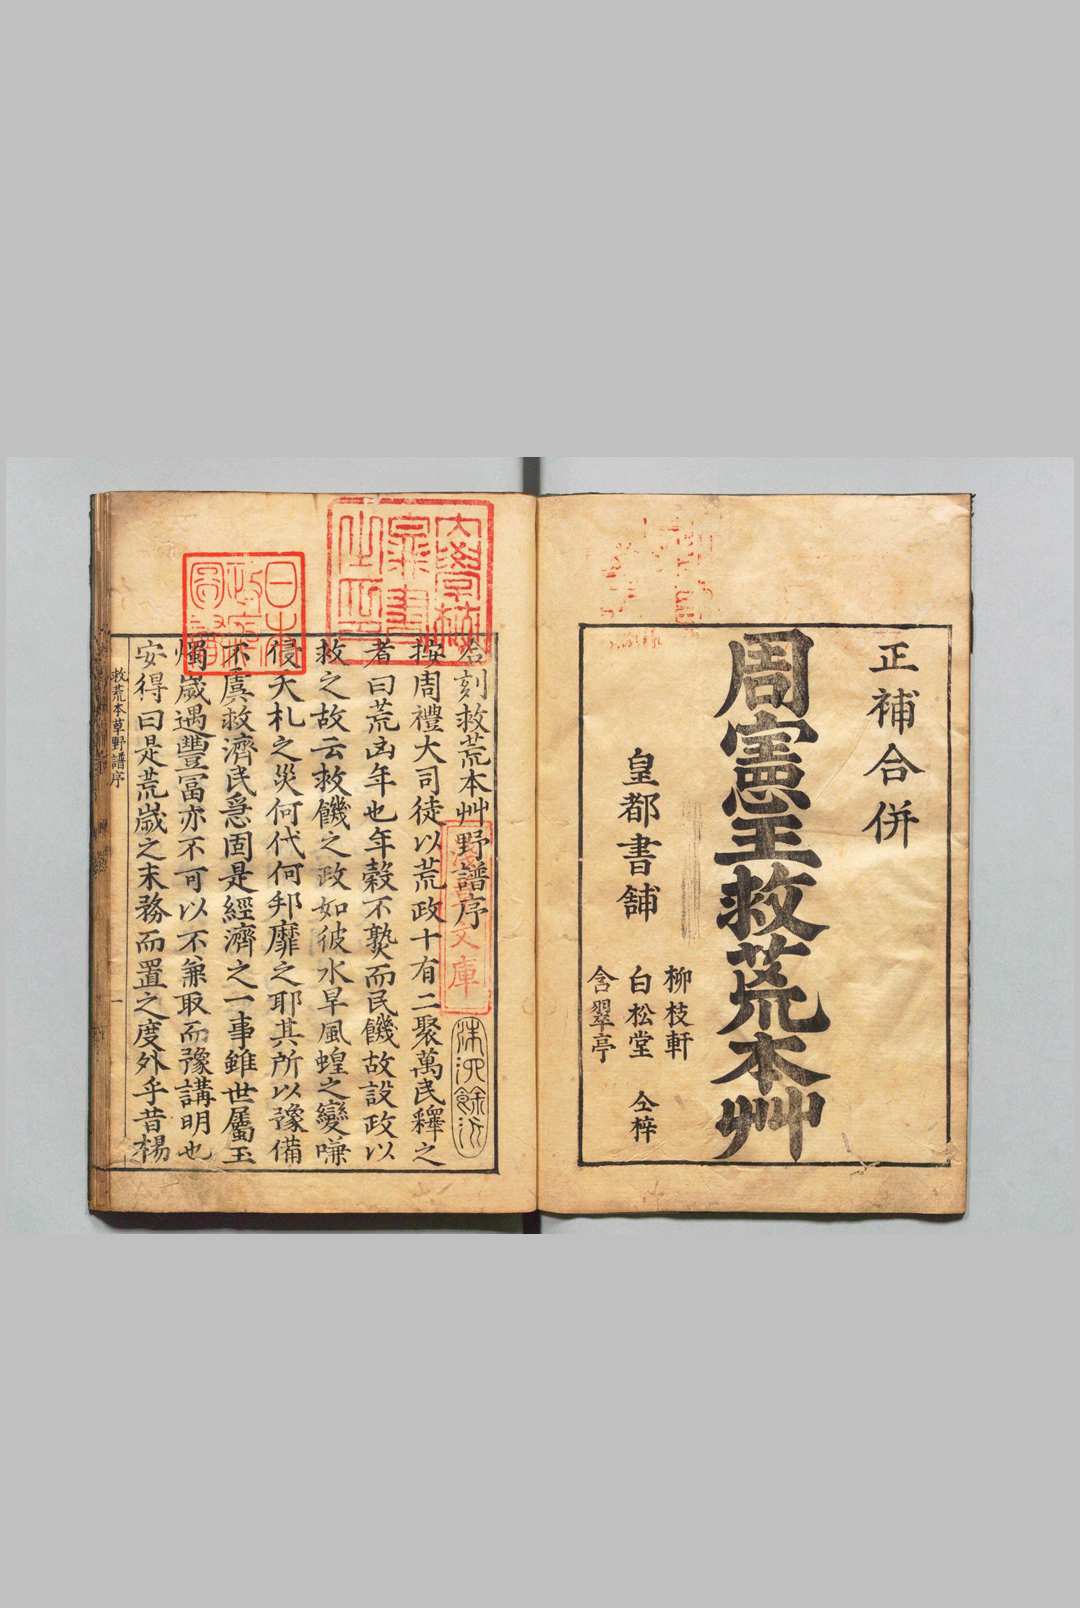 正補合併
周憲王救荒本艸
皇都書舗
柳枝軒
白松堂
含翠亭
仝梓
合刻救荒本艸野譜序
按周禮大司徒以荒政十有二聚萬民釋之
者曰荒凶年也年穀不熟而民饑故設政以
救之故云救饑之政如彼水旱風蝗之變嗛
侵夭札之災何代何邦靡之耶其所以豫備
不虞救濟民急固是經濟之一事雖世屬玉
燭歲遇豐冨亦不可以不兼取而豫講明也
安得曰是荒歲之末務而置之度外乎昔楊
救荒本草野譜序
一
日本
文庫